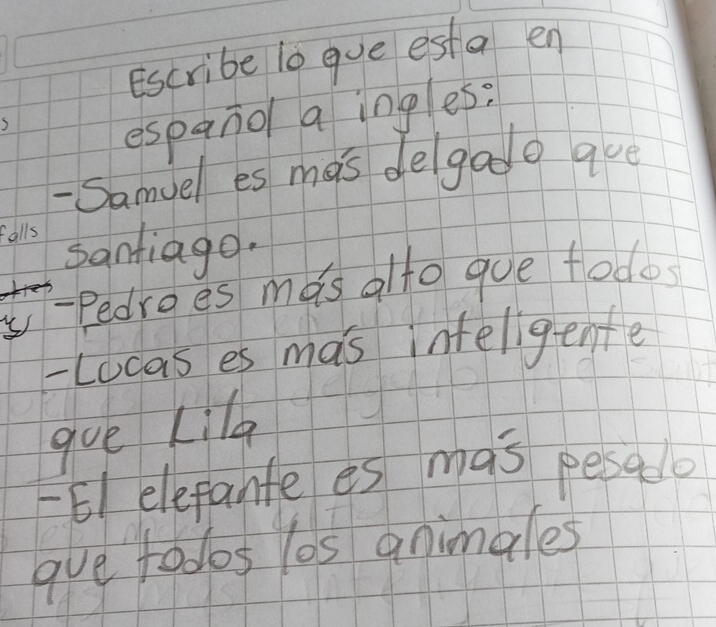 Escribe lo que esta en
español a ingles:
-Samuel es más delgado que
santiago.
-Pedro es más alto que todos
-Lucas es más inteligente
que Lila
-El elefante es más pesado
que todos los animales
s
falls